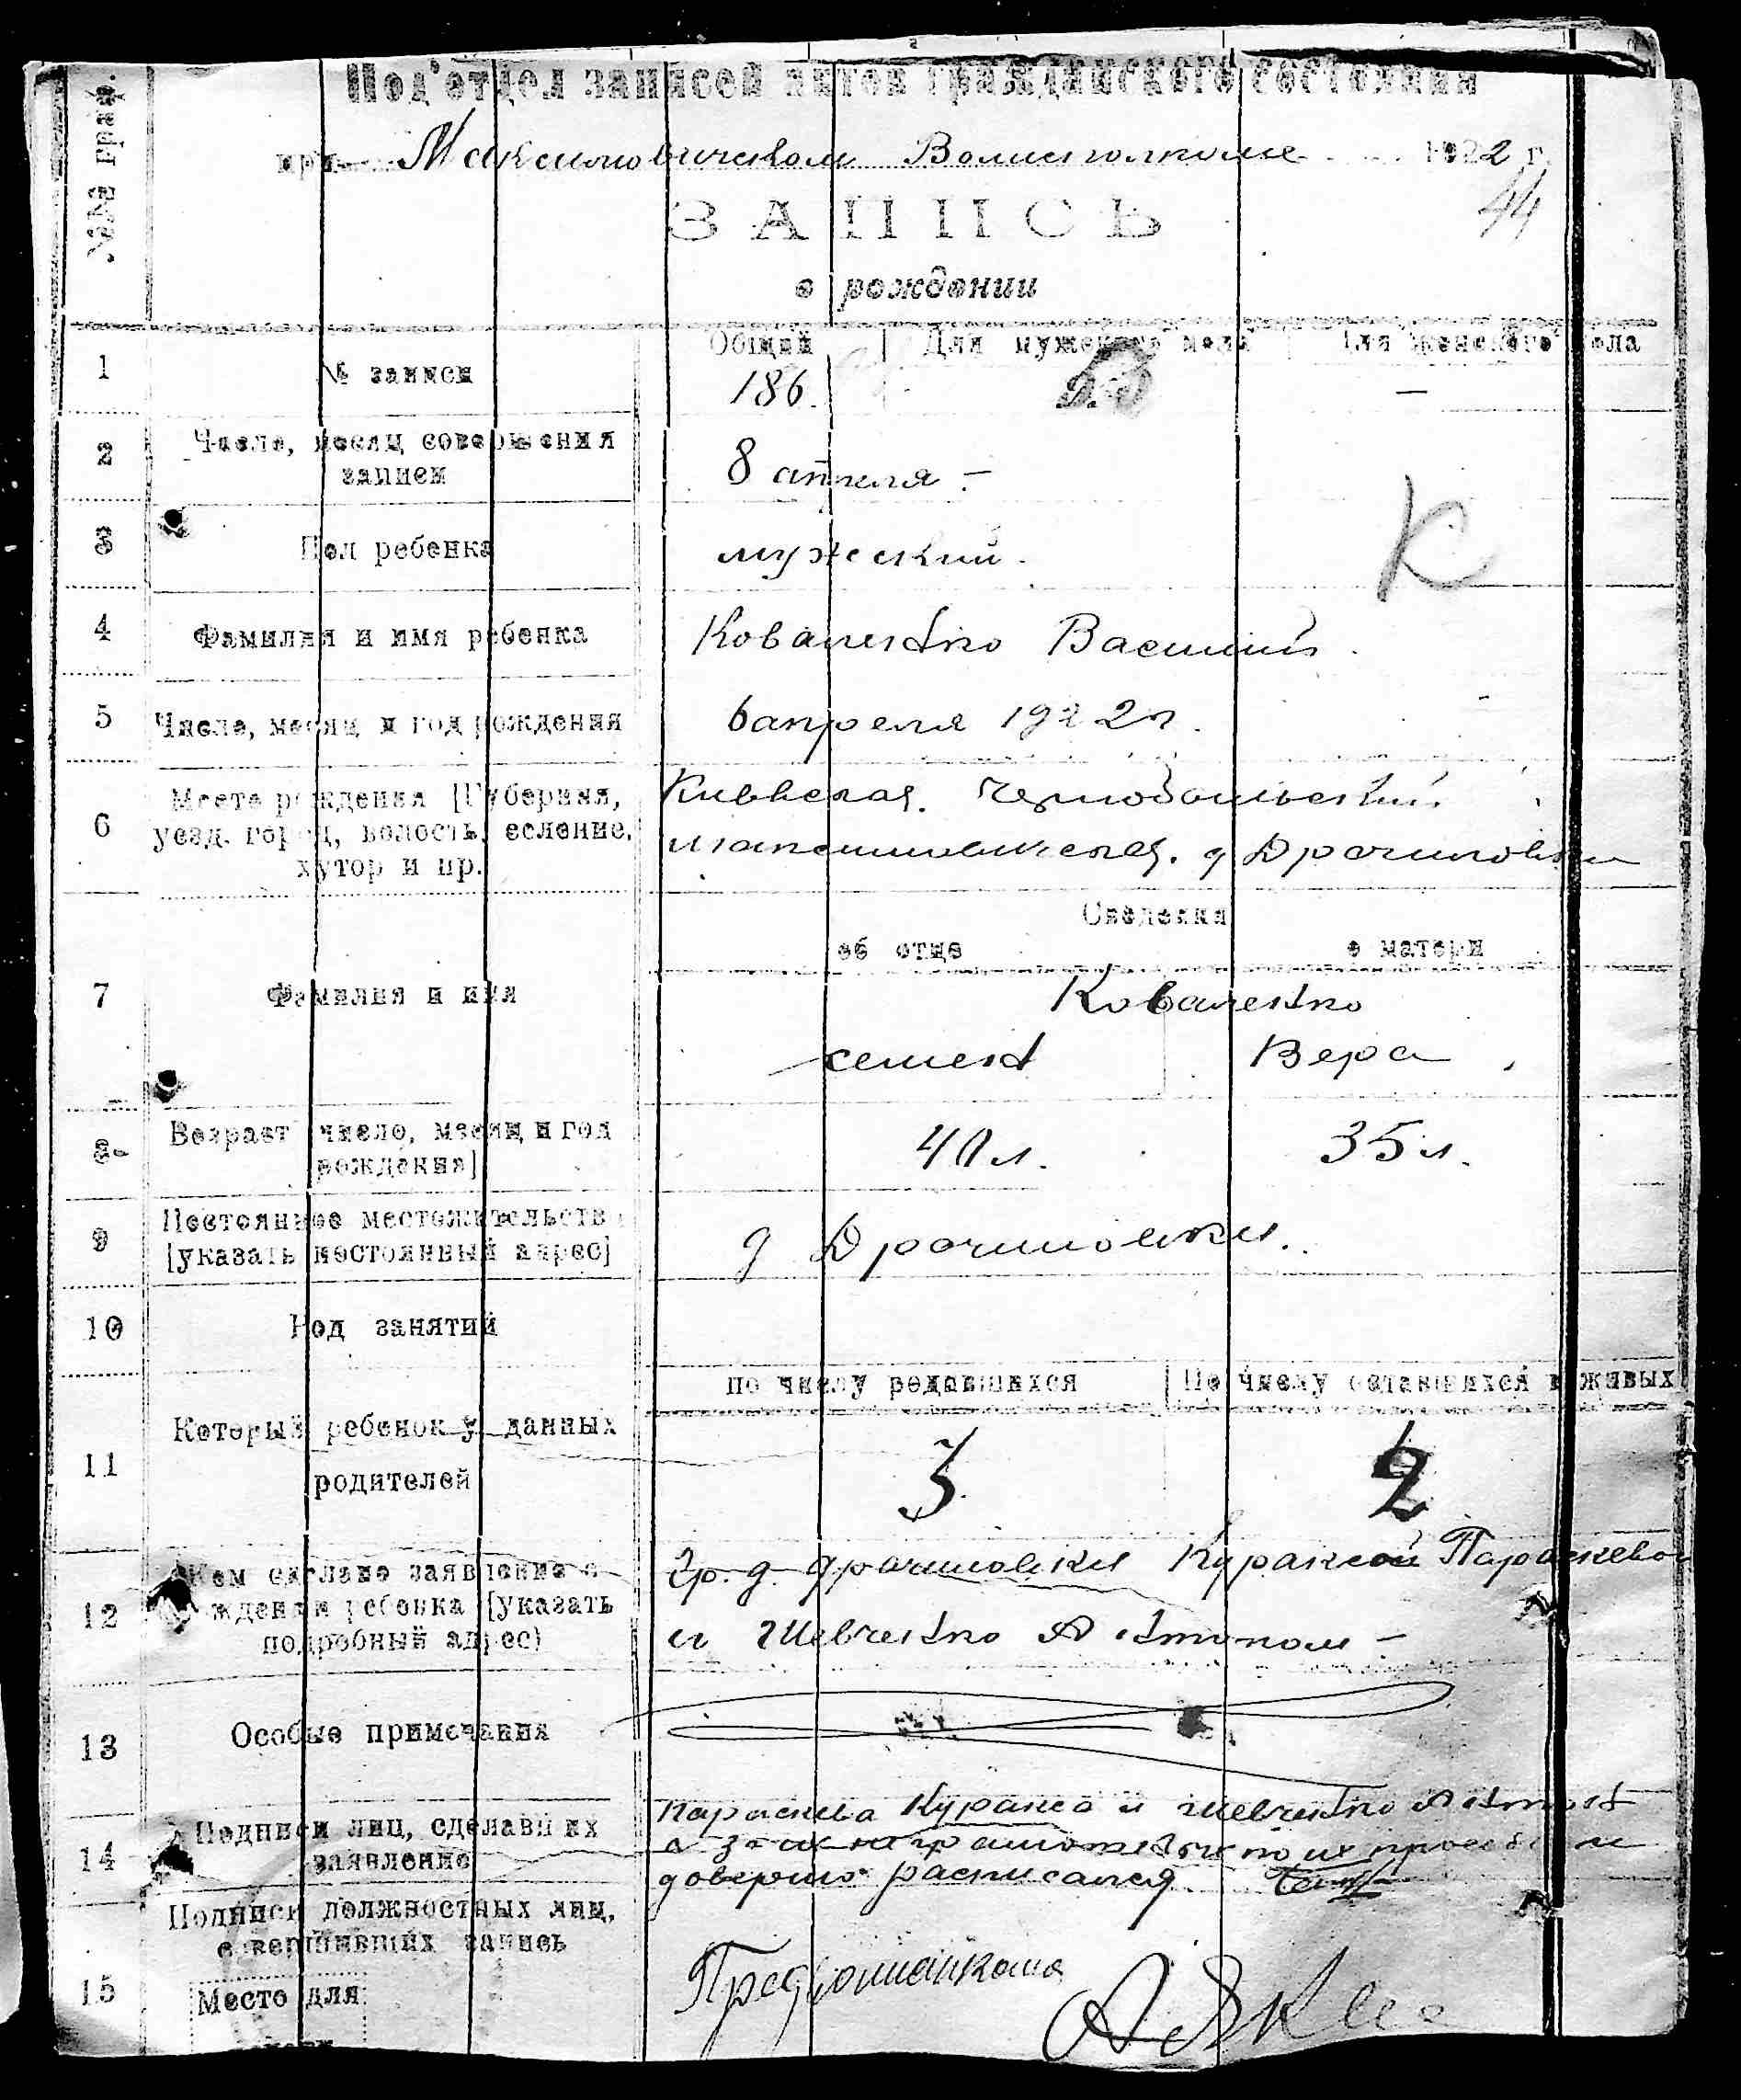 Под'отдел записей актов гражданского состояния
при Максимовическом Волисполкоме 1922 г.
44
ЗАПИСЬ
о рождении
№№ граф.
Общий Для мужского пола Для женского пола
1 № записи 186. –
2 Число, месяц совершения
записи 8 апреля –
3 Пол ребенка мужский.
К
4 Фамилия и имя ребенка Коваленко Василий.
5 Число, месяц и год рождения 6 апреля 1922 г.
6 Место рождения [Губерния,
уезд, город, волость, селение,
хутор и пр. Киевская. Чернобыльский
д
Сведения
об отце о матери
7 Фамилия и имя Коваленко
семен Вера
8 Возраст число, месяц и год
рождения] 40 л. 35 л.
9 Постоянное местожительство
[указать постоянный адрес] д
10 Род занятий
по числу родившихся По числу оставшихся в живых
11 Который ребенок у данных
родителей 3 2
12 Кем сделано заявление о
рождении ребенка [указать
подробный адрес) гр. д. Кураксой Параскевой
и Шевченко Антоном –
13 Особые примечания
14 Подписи лиц, сделавших
заявление Параскева Куракса и Шевченко Антон
а за их неграмотных по их прозьбе и
доверию расписался
Подписи должностных лиц,
совершивших запись
15 Место для